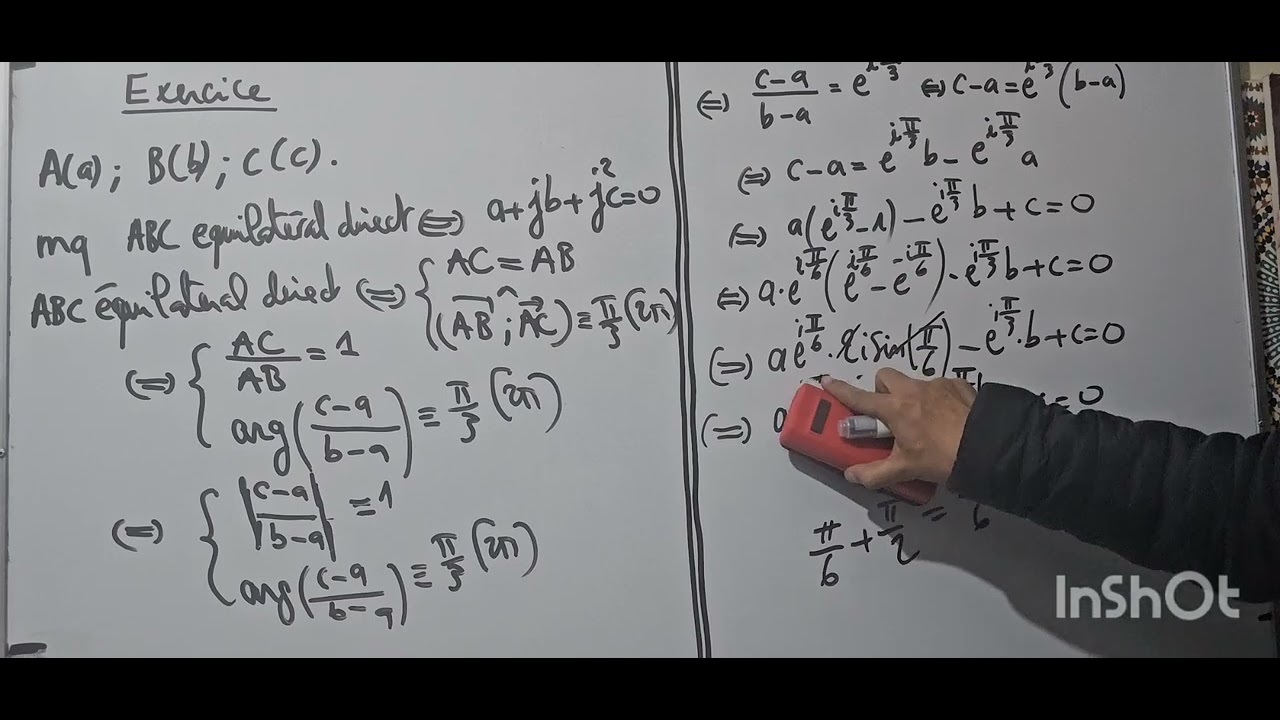 Exercice
A(a); B(b); C(c).
mq ABC equilatéral direct ⇔ a+jb+j²c=0
ABC équilateral direct ⇔ { AC = AB
(AB→ ; AC→)^ ≡ π/3 (2π)
⇔ { AC/AB = 1
arg((c-a)/(b-a)) ≡ π/3 (2π)
⇔ { |c-a|/|b-a| = 1
arg((c-a)/(b-a)) ≡ π/3 (2π)
⇔ (c-a)/(b-a) = e^{iπ/3} ⇔ c-a = e^{iπ/3}(b-a)
⇔ c-a = e^{iπ/3}b - e^{iπ/3}a
⇔ a(e^{iπ/3}-1) - e^{iπ/3}b + c = 0
⇔ a·e^{iπ/6}(e^{iπ/6} - e^{-iπ/6}) - e^{iπ/3}b + c = 0
⇔ ae^{iπ/6}·2i sin(π/6) - e^{iπ/3}·b + c = 0
⇔ a = 0
π/6 + π/2 = 6
InShOt